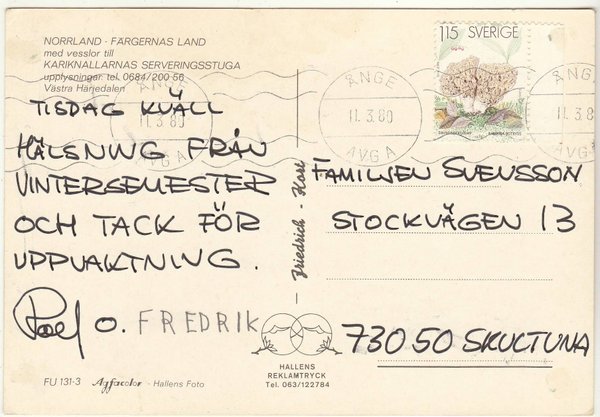 NORRLAND · FÄRGERNAS LAND
med vesslor till
KARIKNALLARNAS SERVERINGSSTUGA
upplysningar tel. 0684/200 56
Västra Härjedalen
TISDAG KVÄLL
HÄLSNING FRÅN
VINTERSEMESTER
OCH TACK FÖR
UPPVAKTNING.
O. FREDRIK
FU 131-3 Agfacolor - Hallens Foto
Friedrich - Kort
HALLENS
REKLAMTRYCK
Tel. 063/122784
115 SVERIGE
ÅNGE
11.3.80
AVGA
ÅNGE
11.3.80
AVGA
ÅNGE
11.3.8
AVG
FAMILJEN SVENSSON
STOCKVÄGEN 13
73050 SKULTUNA